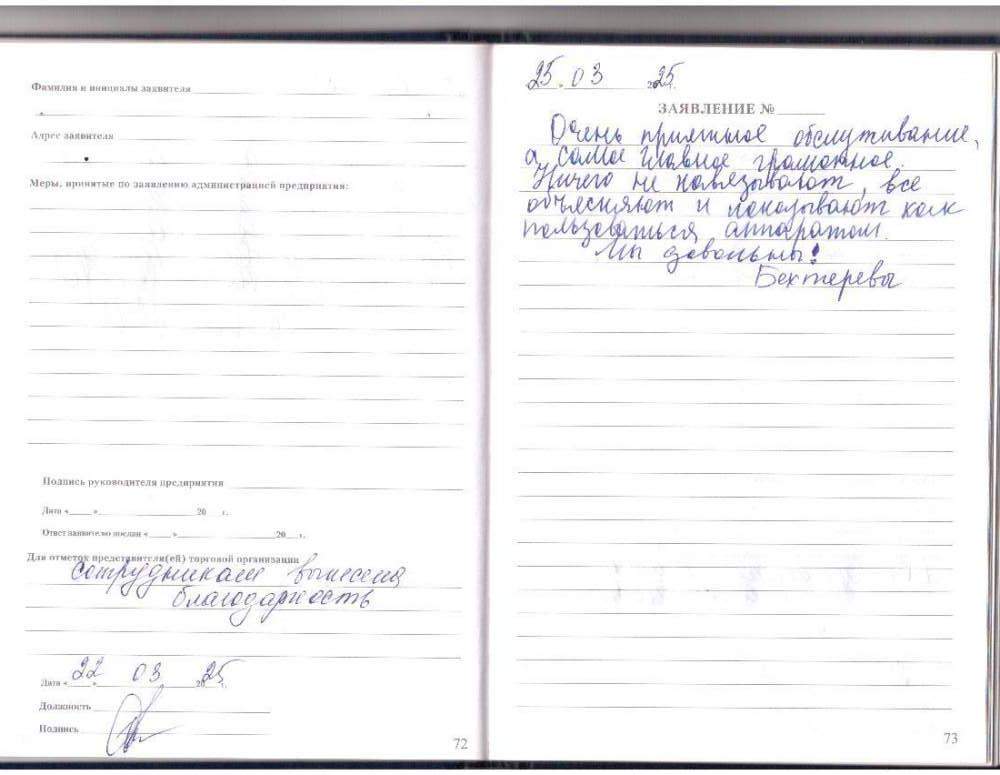 Фамилия и инициалы заявителя
Адрес заявителя
Меры, принятые по заявлению администрацией предприятия:
Подпись руководителя предприятия
Дата «____»____________20___г.
Ответ заявителю послан «____»____________20___г.
Для отметок представителя(ей) торговой организации
сотрудникам вынесена
благодарность
Дата «22» 03 2025 г.
Должность
Подпись
72
25.03 2025.
ЗАЯВЛЕНИЕ №
Очень приятное обслуживание,
а самое главное грамотное.
Ничего не навязывают, все
объясняют и показывают как
пользоваться аппаратом.
Мы довольны!
Бехтеревы
73